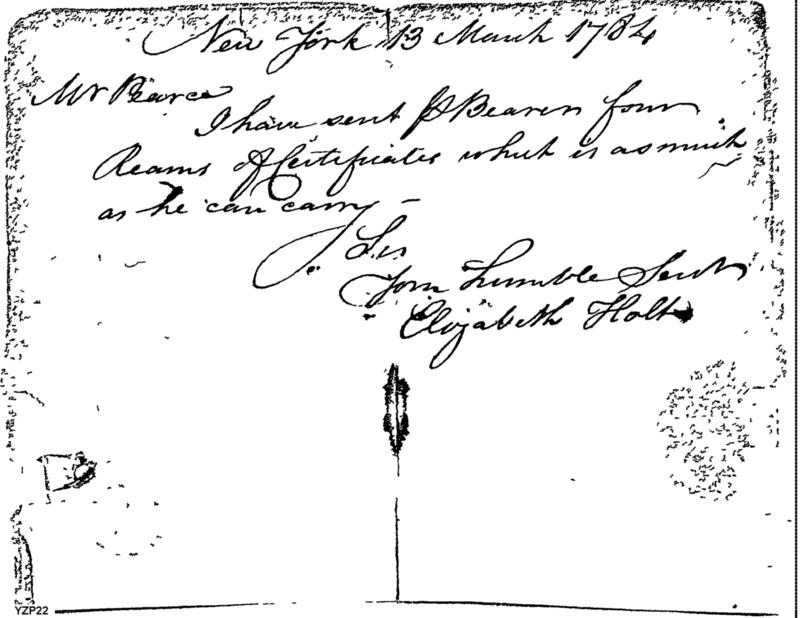 New York 13 March 1784
Mr Pearce
I have sent ⅌ Bearer four
Reams of Certificates which is as much
as he can carry –
I am Sir
Your humble Servt
Elizabeth Holt
YZP22